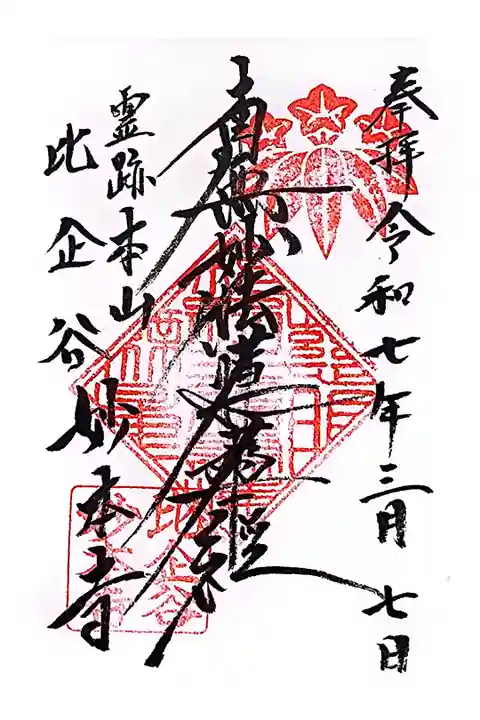 奉拝令和七年三月七日
南無妙法蓮華経
霊跡本山
比企谷妙本寺